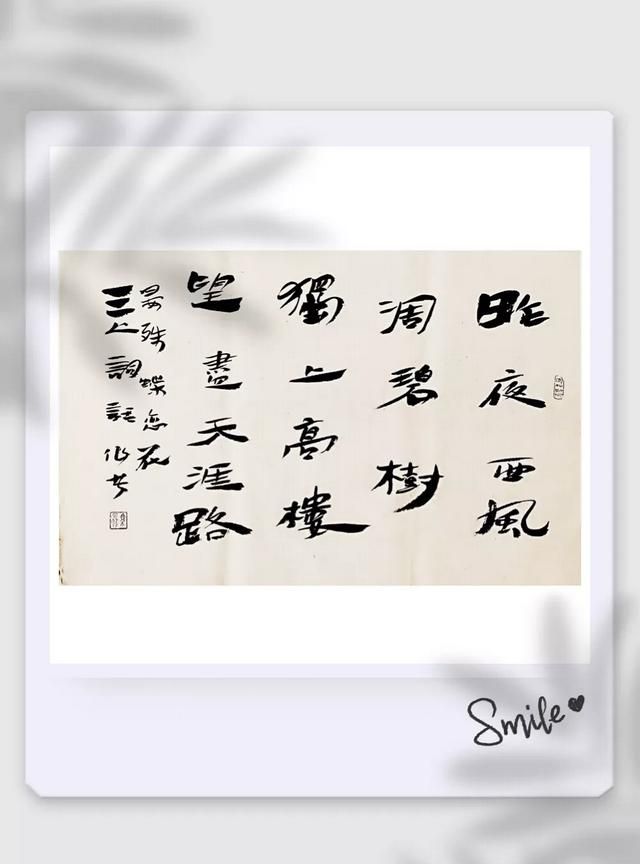 昨夜西風
凋碧樹
獨上高樓
望盡天涯路
晏殊蝶恋花
三上詞話
Smile